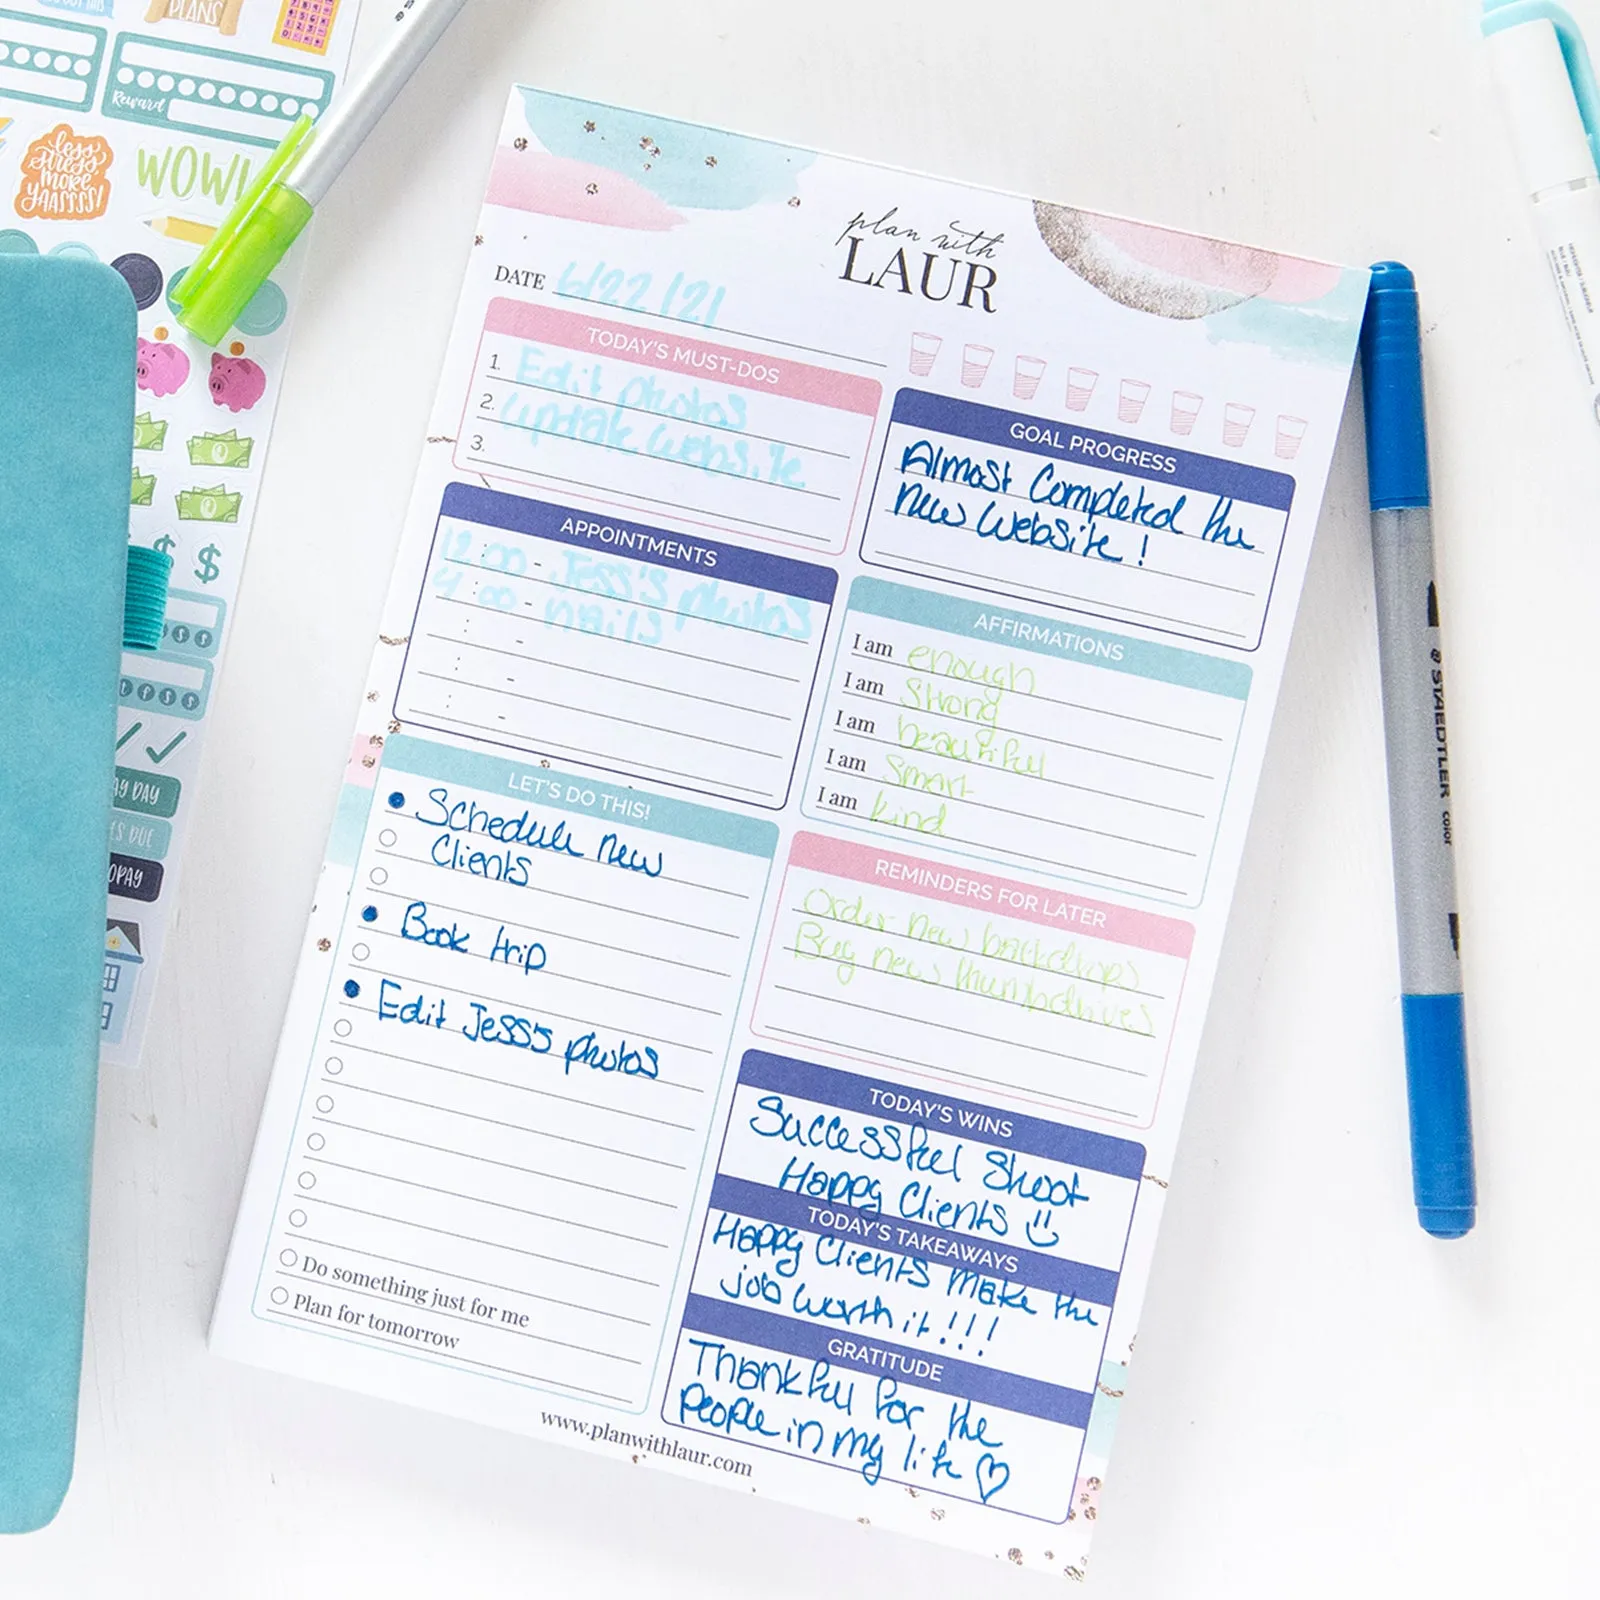 PLANS
Reward
less
stress,
more
yaassss!
WOW!
plan with
LAUR
DATE 6/22/21
TODAY'S MUST-DOS
1. Edit photos
2. update website
3.
APPOINTMENTS
12:00 - Jess's photos
4:00 - nails
LET'S DO THIS!
Schedule new
Clients
Book trip
Edit Jess's photos
Do something just for me
Plan for tomorrow
GOAL PROGRESS
Almost Completed the
new website!
AFFIRMATIONS
I am enough
I am Strong
I am beautiful
I am Smart
I am kind
REMINDERS FOR LATER
Order new backdrops
Buy new thumbdrives
TODAY'S WINS
Successful Shoot
Happy Clients
TODAY'S TAKEAWAYS
Happy Clients make the
job worth it!!!
GRATITUDE
Thankful for the
people in my life
www.planwithlaur.com
STAEDTLER color